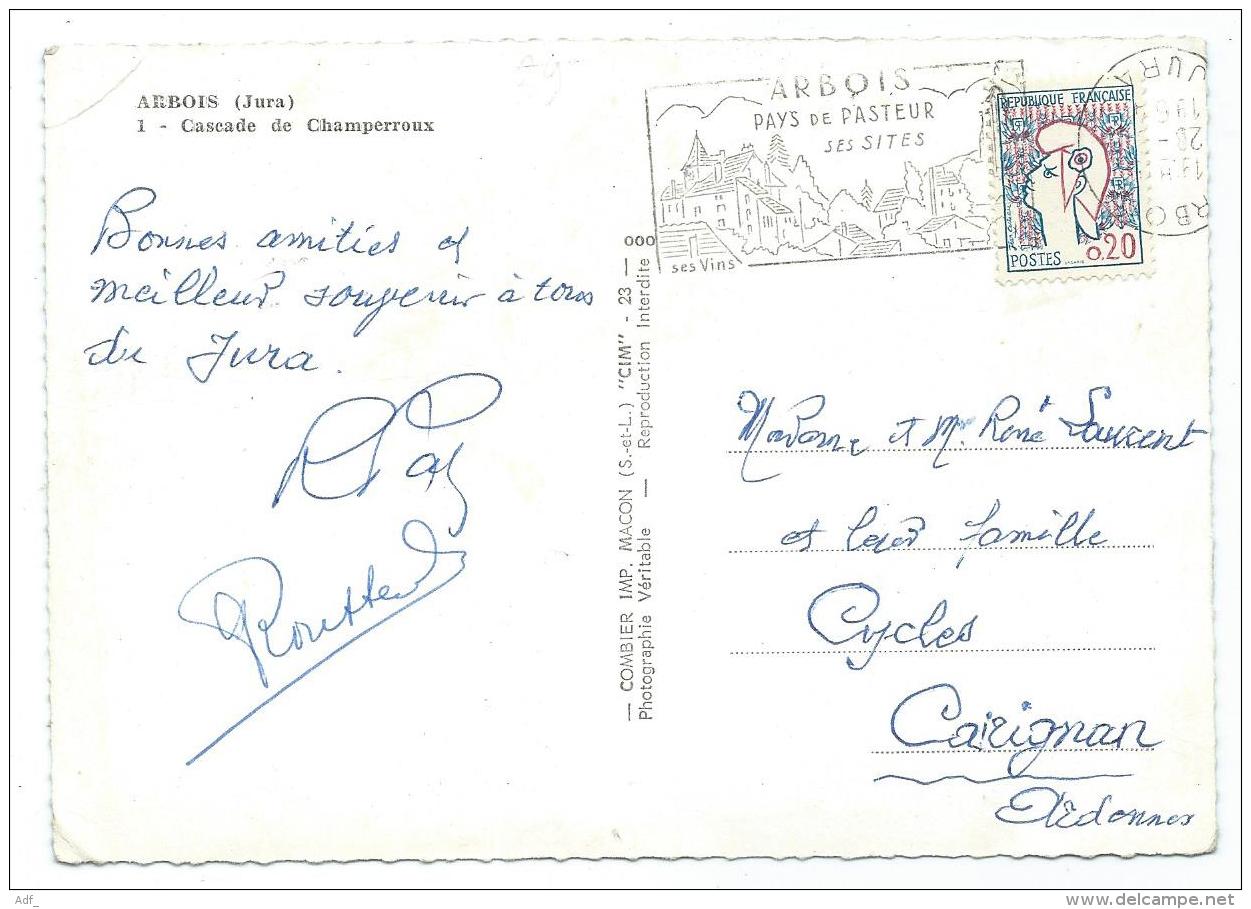 ARBOIS (Jura)
1 - Cascade de Champerroux
Bonnes amitiés et
meilleur souvenir à tous
du Jura.
ARBOIS
PAYS DE PASTEUR
SES SITES
ses Vins
REPUBLIQUE FRANÇAISE
POSTES 0.20
JURA
— COMBIER IMP. MACON (S.-et-L.) "CIM" - 23 — 000
Photographie Véritable — Reproduction Interdite
Madame et Mr. René Laurent
et leur famille
Cycles
Carignan
Ardennes
Adf_
www.delcampe.net